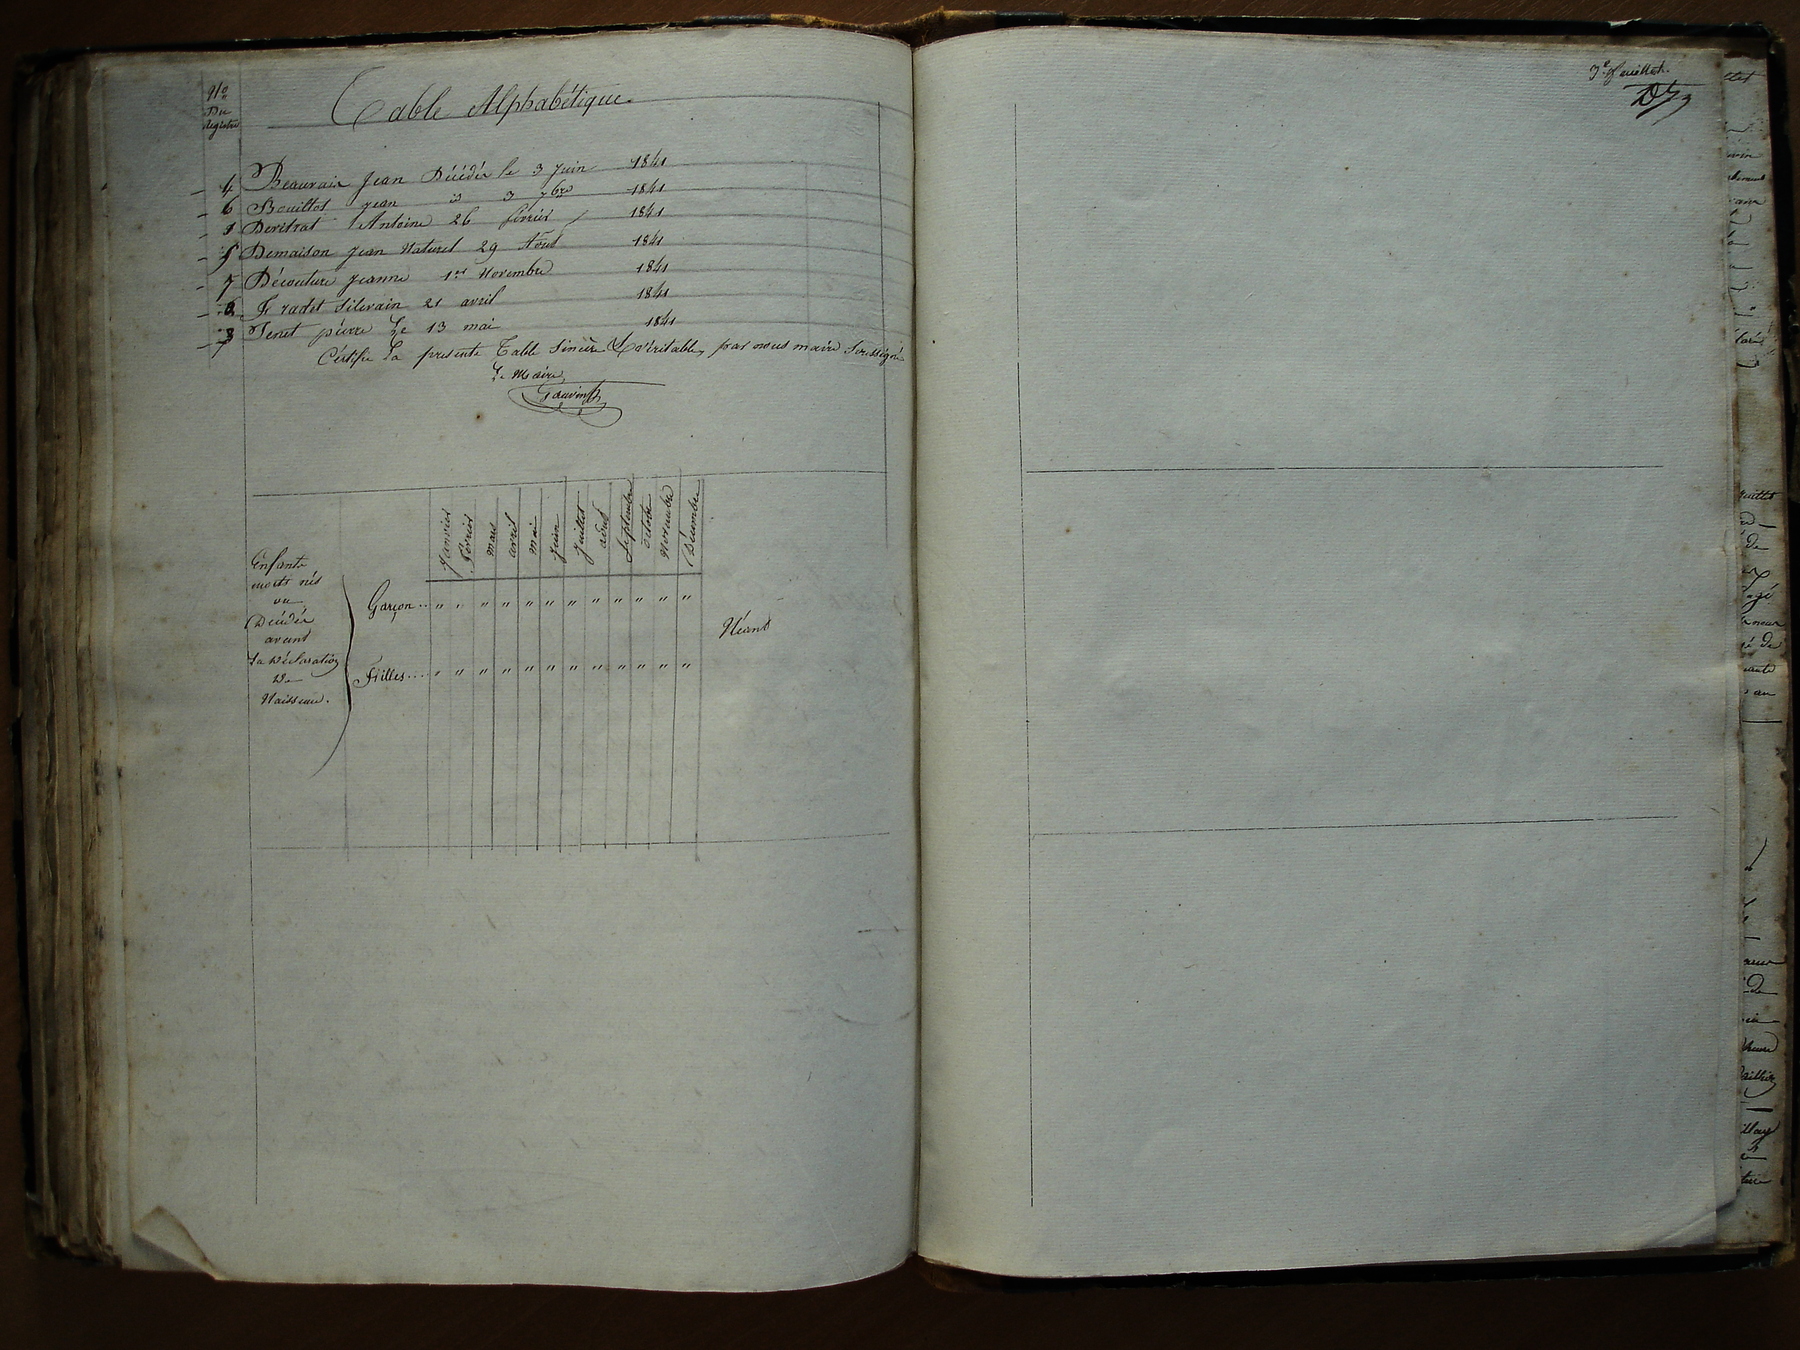 No
Du
Registre
Table Alphabétique.
4 Beauvais Jean Décédé le 3 Juin 1841
6 Bouillot Jean " 3 7bre 1841
1 Antoine 26 février 1841
5 Demaison Jean Naturel 29 Août 1841
7 Découture Jeanne 1er Novembre 1841
2 Fradet Silvain 21 avril 1841
3 Tenet pierre Le 13 mai 1841
Certifié La presente Table Sincère & véritable, par nous maire Soussigné
Le Maire
Janvier
février
mars
avril
mai
Juin
Juillet
août
Septembre
octobre
Novembre
Décembre
Enfants
morts nés
ou
Décédés
avant
La Déclaration
De
Naissance.
Garçon .. " " " " " " " " " " " "
Néant
Filles .... " " " " " " " " " " " "
3e feuillet.